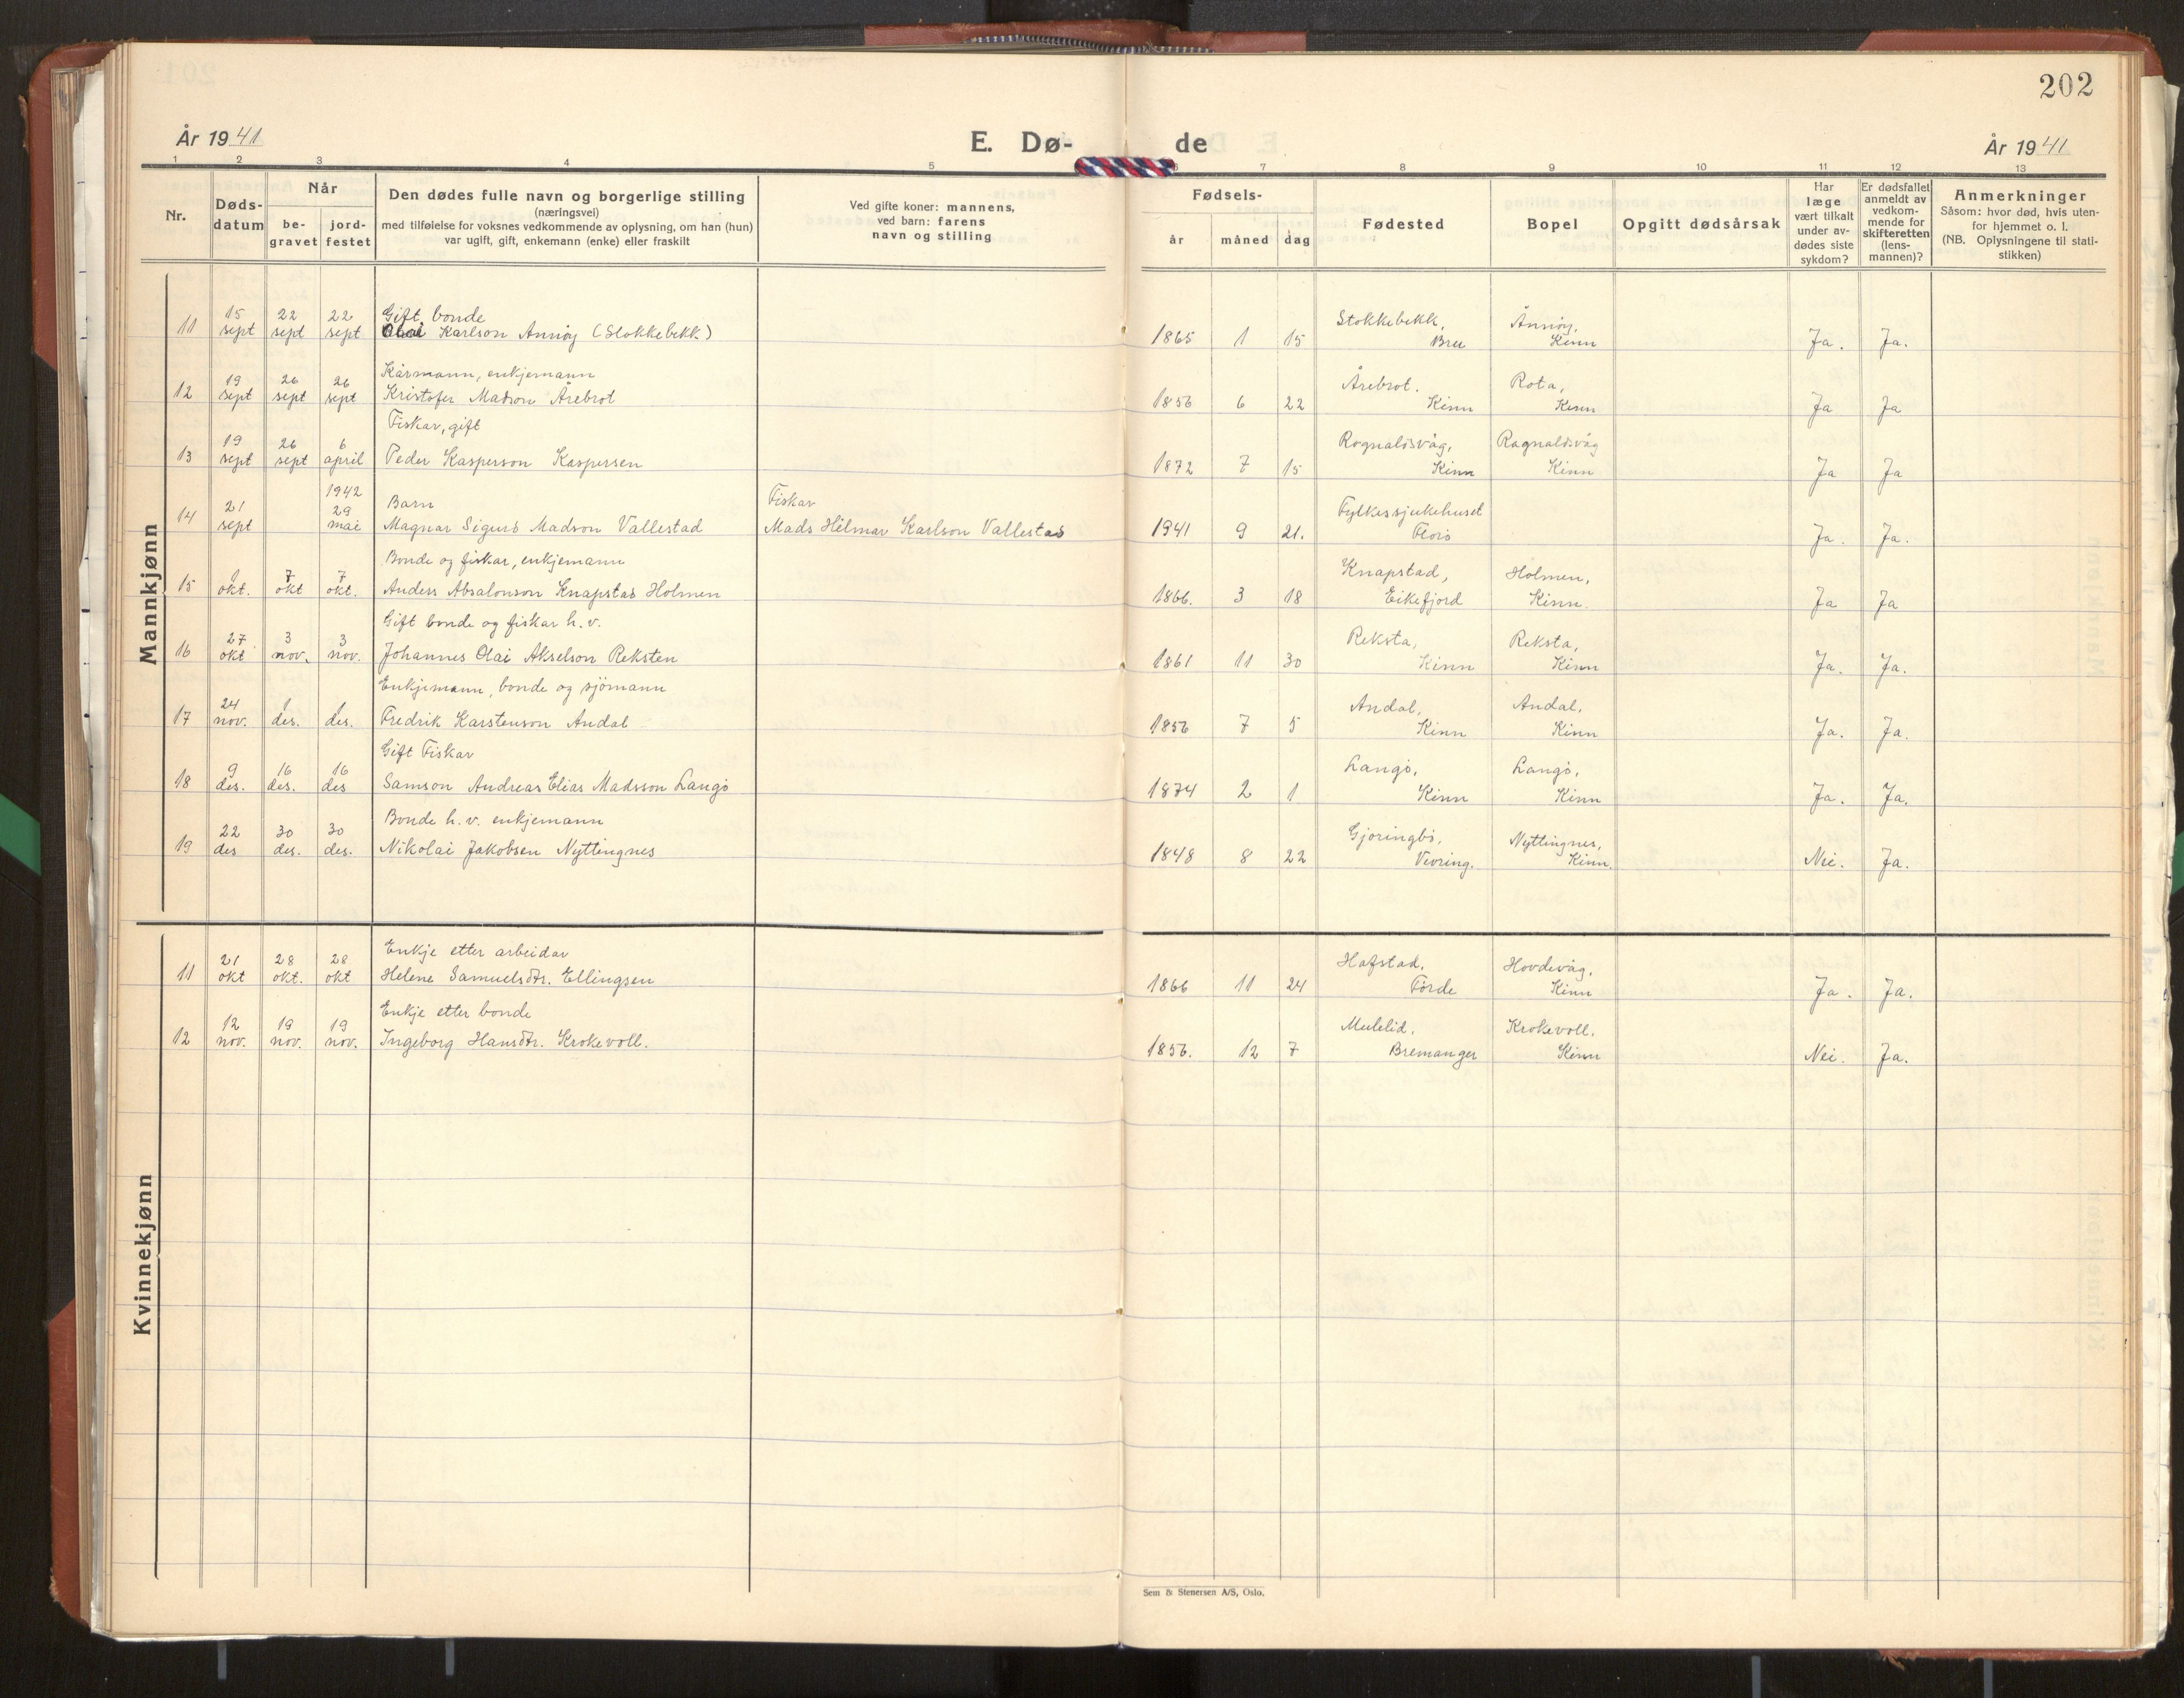 202
År 1941
E. Dø-
de
År 1941
1 2 3 4 5 6 7 8 9 10 11 12 13
Nr.
Døds-
datum
Når
be-
gravet
jord-
festet
Den dødes fulle navn og borgerlige stilling
(næringsvei)
med tilføielse for voksnes vedkommende av oplysning, om han (hun)
var ugift, gift, enkemann (enke) eller fraskilt
Ved gifte koner: mannens,
ved barn: farens
navn og stilling
Fødsels-
år måned dag
Fødested
Bopel
Opgitt dødsårsak
Har
læge
vært tilkalt
under av-
dødes siste
sykdom?
Er dødsfallet
anmeldt av
vedkom-
mende for
skifteretten
(lens-
mannen)?
Anmerkninger
Såsom: hvor død, hvis uten-
for hjemmet o. l.
(NB. Oplysningene til stati-
stikken)
Mannkjønn
15 22 22 Gift bonde Stokkebekk, Ånnøy,
11 sept sept sept Olai Karlson Annøy (Stokkebekk) 1865 1 15 Bru Kinn Ja. Ja.
19 26 26 Kårmann, enkjemann Årebrot. Rota,
12 sept sept sept Kristofer Madson Årebrot 1856 6 22 Kinn Kinn Ja Ja
19 26 6 Fiskar, gift Rognaldsvåg, Rognaldsvåg
13 sept sept april Peder Kasperson Kaspersen 1872 7 15 Kinn Kinn Ja Ja
1942
21 29 Barn Fiskar Fylkessjukehuset
14 sept mai Magnar Sigurd Madson Vallestad Mads Hilmar Karlson Vallestad 1941 9 21. Florö Ja. Ja.
1 7 7 Bonde og fiskar, enkjemann Knapstad, Holmen,
15 okt. okt okt. Anders Absalonson Knapstad Holmen 1866. 3 18 Eikefjord Kinn. Ja Ja
27 3 3 Gift bonde og fiskar h. v. Reksta, Reksta,
16 okt nov. nov. Johannes Olai Akselson Reksten 1861 11 30 Kinn Kinn Ja. Ja.
24 1 1 Enkjemann, bonde og sjömann Andal, Andal,
17 nov. des. des. Fredrik Karstenson Andal 1856 7 5 Kinn Kinn Ja. Ja.
9 16 16 Gift Fiskar Langö, Langö,
18 des. des. des Samson Andreas Elias Madsson Langö 1874 2 1 Kinn Kinn Ja. Ja.
22 30 30 Bonde h. v. enkjemann Gjöringbö, Nyttingnes,
19 des des. des. Nikolai Jakobsen Nyttingnes 1848 8 22 Vevring. Kinn. Nei. Ja.
Kvinnekjønn
21 28 28 Enkje etter arbeidar Hafstad, Hovdevåg,
11 okt okt. okt Helene Samuelsdtr. Ellingsen 1866 11 24 Förde Kinn Ja. Ja.
12 19 19 Enkje etter bonde Mulelid, Krokevoll,
12 nov. nov. nov. Ingeborg Hansdtr. Krokevoll. 1856. 12 7 Bremanger Kinn Nei. Ja.
Sem & Stenersen A/S, Oslo.